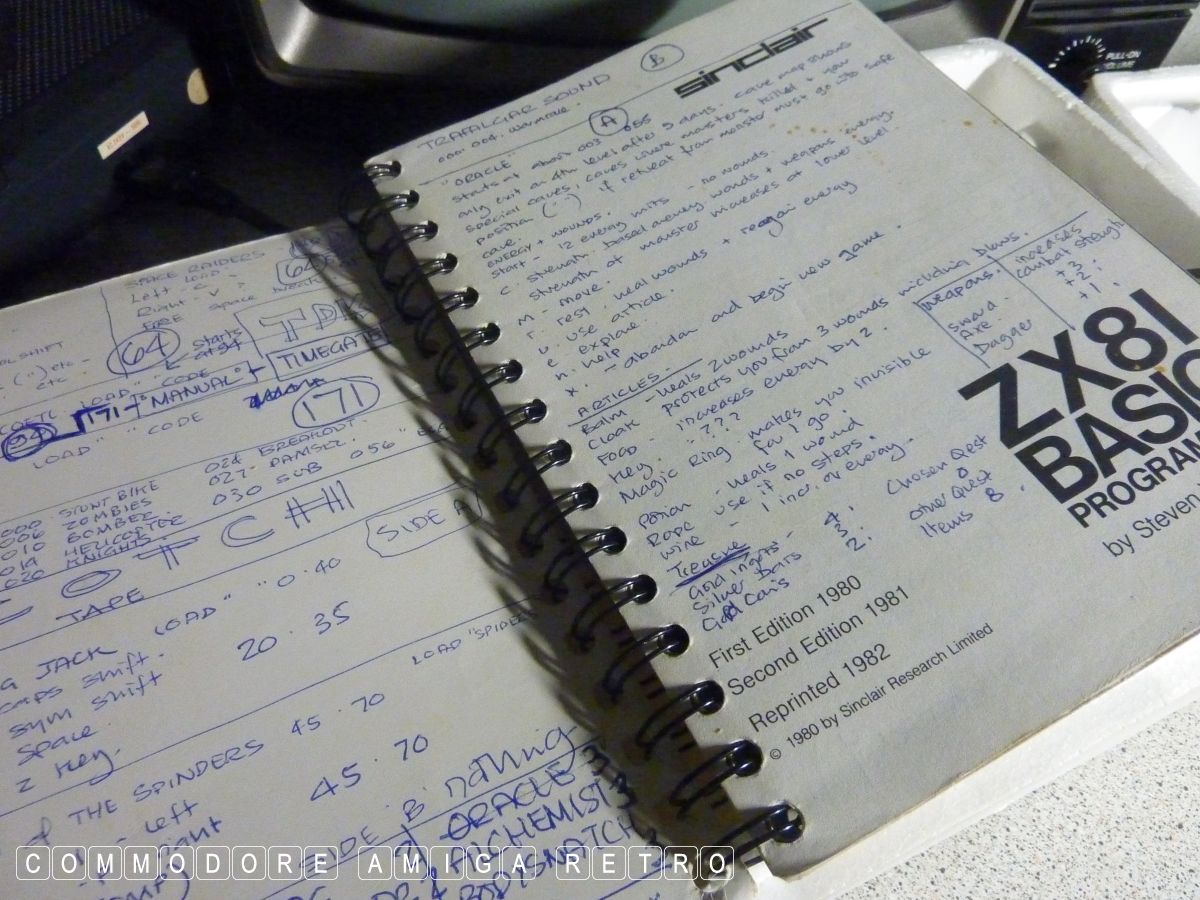 SPACE RAIDERS
Left
Right
FIRE
64
64
Starts
at 54
TDK
TIMEGATE
171
MANUAL
LOAD " " CODE
171
000 STUNT BIKE
006 ZOMBIES
010 BOMBER
014 HELICOPTER
020 KNIGHTS
024 BREAKOUT
027 DAMSEL
030 SUB 056
SIDE A
TAPE
JACK LOAD "" 0.40
caps shift.
sym shift
space
z key.
20.35
LOAD "SPIDER
THE SPINDERS 45.70
left
45.70
SIDE B nothing
ORACLE
ALCHEMIST
BODYSNATCH
TRAFALGAR SOUND
B
sinclair
A
"ORACLE"
starts at about 003 055
only exit on 4th level after 5 days. cave map shows
special caves, caves where monsters killed + your
position (..) if retreat from monster must go into safe
cave.
energy + wounds.
start - 12 energy units - no wounds.
C strength based on energy wounds + weapons energy.
strength of monster increases at lower level.
M - move.
r. rest, heal wounds + reagain energy
u. use article.
e. explore.
h. help
x. - abandon and begin new game.
ARTICLES.
Balm - heals 2 wounds
Cloak protects you from 3 wounds including blows.
Food - increases energy by 2.
Key. - ???
Magic Ring - makes you invisible
for 1 go.
Potion - heals 1 wound.
Rope use if no steps.
wine - 1 incr. of energy.
weapons. increases
combat strength
sword. +3.
Axe. +2.
Dagger +1.
Treasure
Gold ingots - 4.
Silver Bars 3.
Gold Coins 2.
Chosen Quest
other Quest
Items 8.
ZX81
BASIC
PROGRAM
by Steven
First Edition 1980
Second Edition 1981
Reprinted 1982
© 1980 by Sinclair Research Limited
PULL-ON
VOLUME
COMMODORE AMIGA RETRO